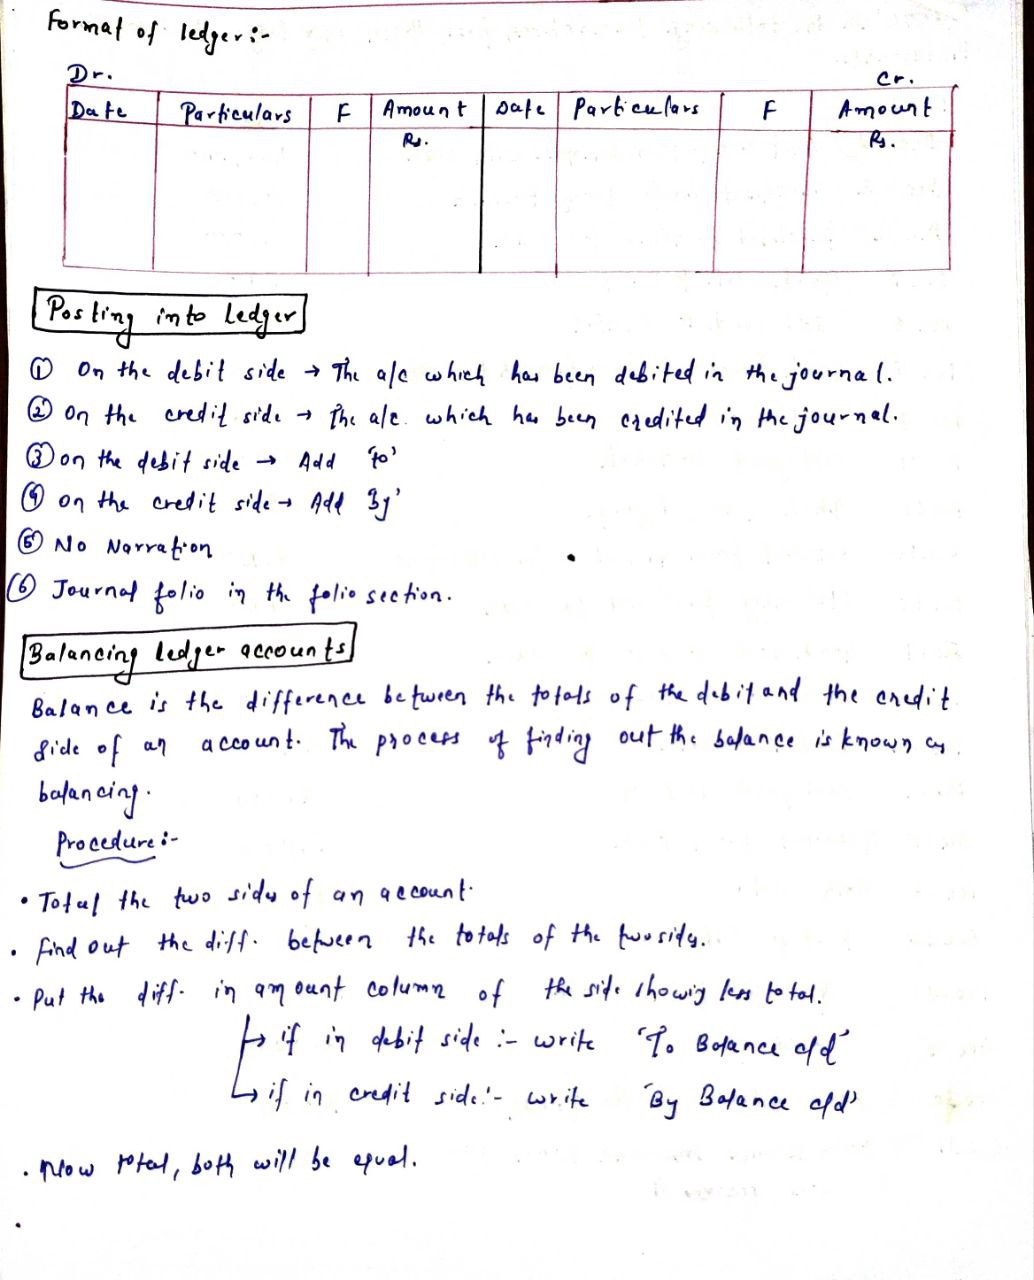 Format of ledger:-
Dr. Cr.
Date Particulars F Amount Date Particulars F Amount
Rs. Rs.
Posting into Ledger
① On the debit side → The a/c which has been debited in the journal.
② On the credit side → The a/c which has been credited in the journal.
③ on the debit side → Add 'To'
④ on the credit side → Add 'By'
⑤ No Narration
⑥ Journal folio in the folio section.
Balancing ledger accounts
Balance is the difference between the totals of the debit and the credit
side of an account. The process of finding out the balance is known as
balancing.
Procedure:-
• Total the two sides of an account.
• find out the diff. between the totals of the two sides.
• Put the diff. in amount column of the side showig less total.
↳ if in debit side :- write 'To Balance c/d'
↳ if in credit side:- write 'By Balance c/d'
• Now total, both will be equal.